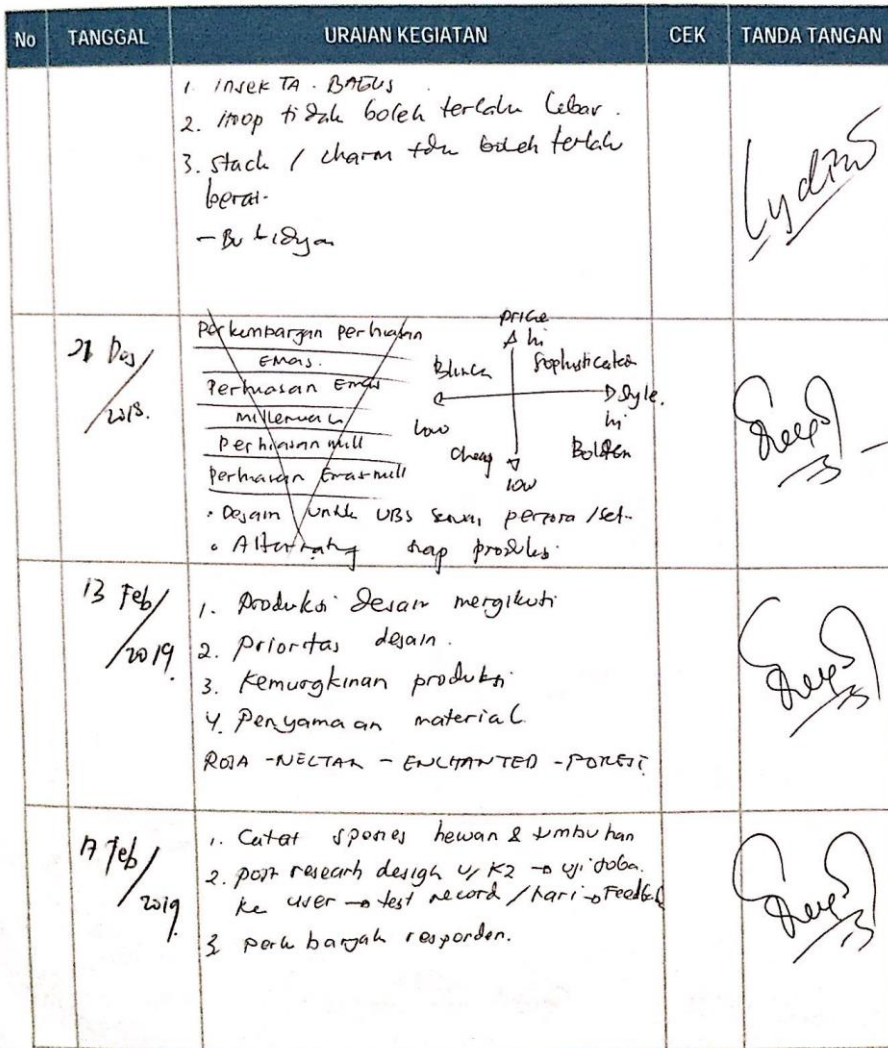 No TANGGAL URAIAN KEGIATAN CEK TANDA TANGAN
1. INSEKTA - BAGUS
2. Hoop tidak boleh terlalu lebar.
3. Stack / charm tdk boleh terlalu
berat.
- Bu Lidya
Des/
2018.
Perkembangan perhiasan
Emas.
Perhiasan Emas
millennial
Perhiasan mill
Perhiasan Emas mill
price
hi
Sophisticated
Style.
low
hi
Cheap
low
• Desain untuk UBS sesuai persona / set.
• Alternatif tiap produksi.
13 Feb/
2019.
1. Produksi desain mengikuti
2. Prioritas desain.
3. Kemungkinan produksi
4. Penyamaan material
ROSA - NECTAR - ENCHANTED - FOREST
Feb/
2019
1. Catat spesies hewan & tumbuhan
2. post research design u/ K2 → uji coba.
ke user → test record / hari → Feedback
3. perlu banyak responden.